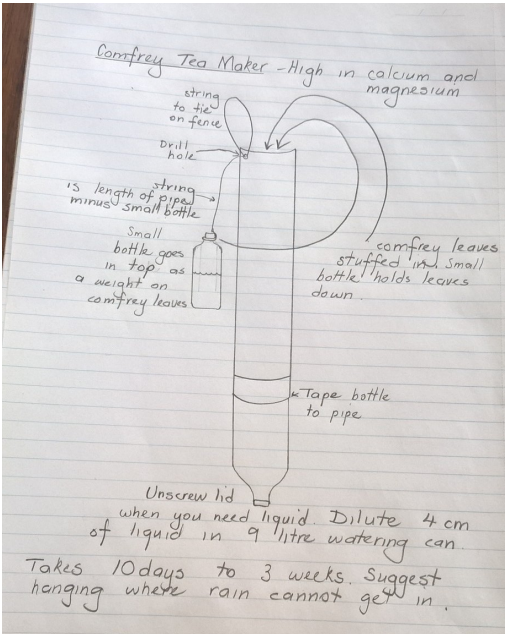 Comfrey Tea Maker - High in calcium and
magnesium
string
to tie
on fence
Drill
hole
string
is length of pipe
minus small bottle
Small
bottle goes
in top as
a weight on
comfrey leaves
comfrey leaves
stuffed in. Small
bottle holds leaves
down.
Tape bottle
to pipe
Unscrew lid
when you need liquid. Dilute 4 cm
of liquid in 9 litre watering can.
Takes 10 days to 3 weeks. Suggest
hanging where rain cannot get in.